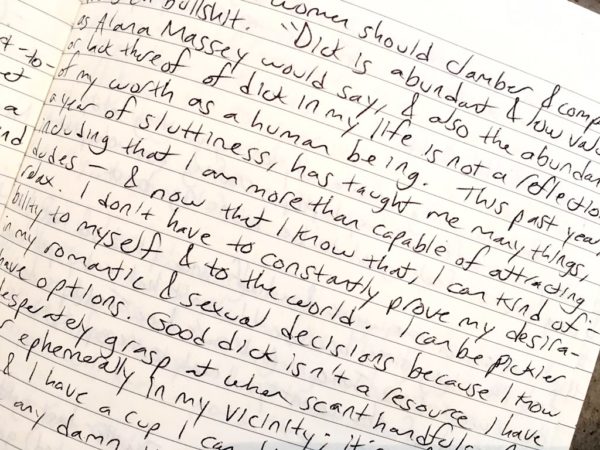 t-to-
et
a
nd
bullshit. women should clamber & comp
as Alana Massey would say, "Dick is abundant & low valu
or lack thereof of dick in my life is not a reflection
of my worth as a human being. This past year,
a year of sluttiness, has taught me many things,
including that I am more than capable of attracting
dudes — & now that I know that, I can kind of
relax. I don't have to constantly prove my desira-
bility to myself & to the world. I can be pickier
in my romantic & sexual decisions because I know
have options. Good dick isn't a resource I have
esperately grasp at when scant handfuls
ephemerally in my vicinity; it's
& I have a cup I can
any damn